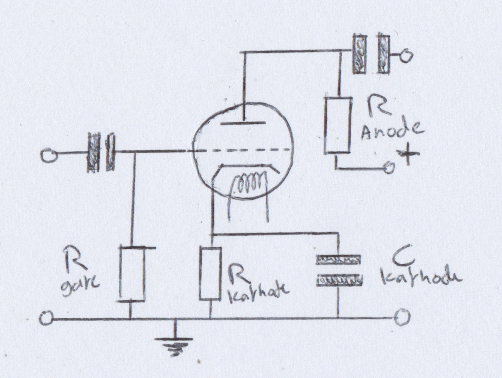 R
Anode
+
R
gate
R
kathode
C
kathode